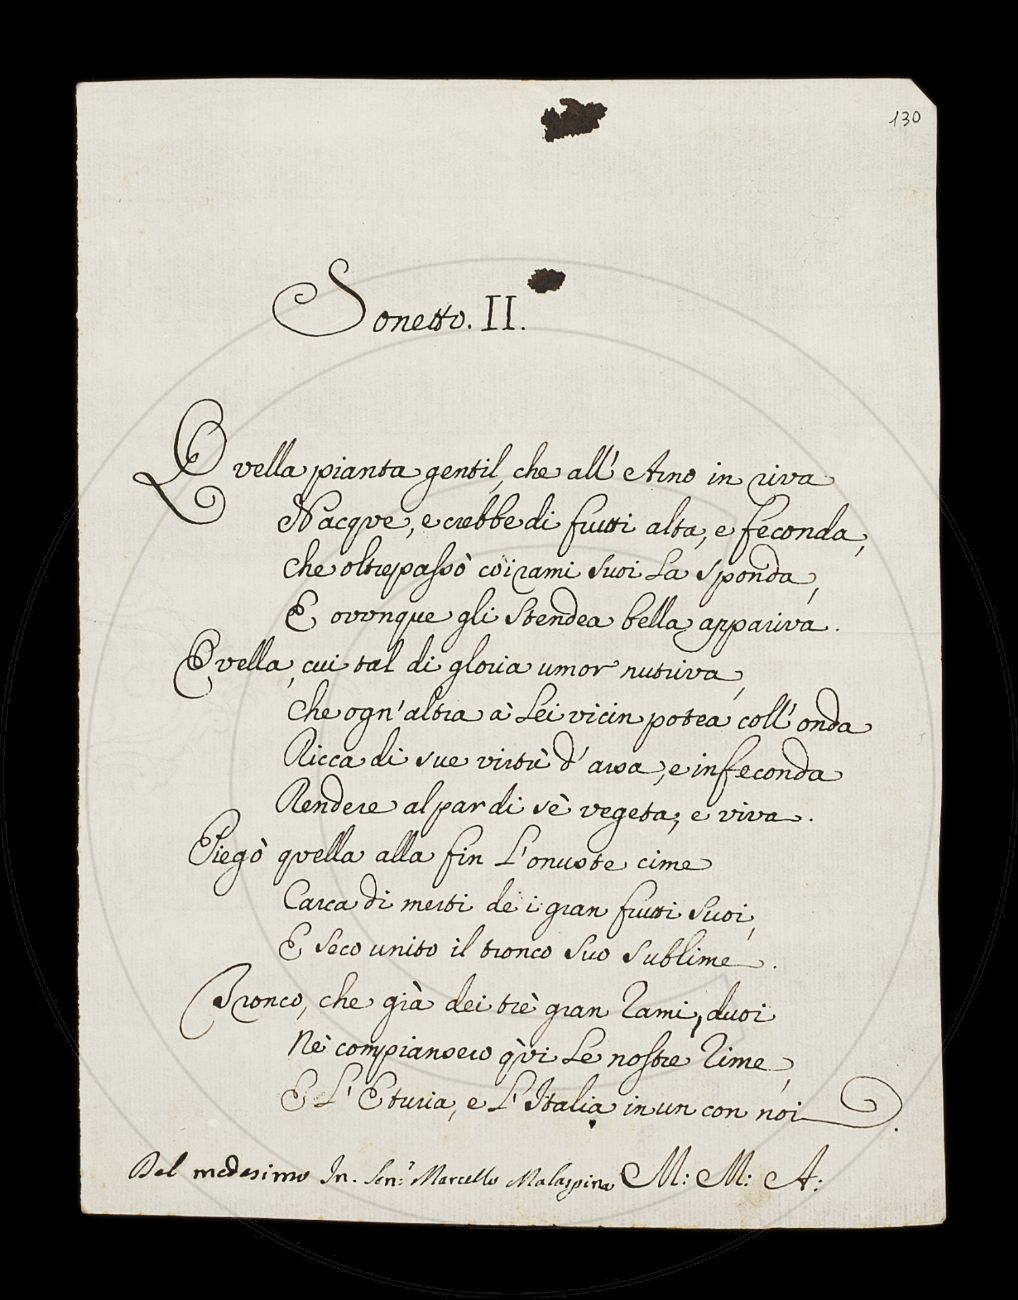 130
Sonetto. II.
Qvella pianta gentil, che all' Arno in riva
Nacqve, e crebbe di frutti alta, e feconda,
Che oltrepassò co'i rami suoi La sponda,
E ovvnque gli stendea bella appariva.
Qvella, cui tal di gloria umor nutriva,
Che ogn' altra à Lei vicin potea coll' onda
Ricca di sue virtù d' arsa, e infeconda
Rendere al par di sè vegeta, e viva.
Piegò qvella alla fin L' onuste cime
Carca di merti de i gran frutti suoi,
E seco unito il tronco suo sublime.
Tronco, che già dei trè gran Rami, duoi
Nè compiansero qvi Le nostre Rime,
E L' Eturia, e L' Italia in un con noi.
Del medesimo Sen.r Marcello Malaspina M: M: A: